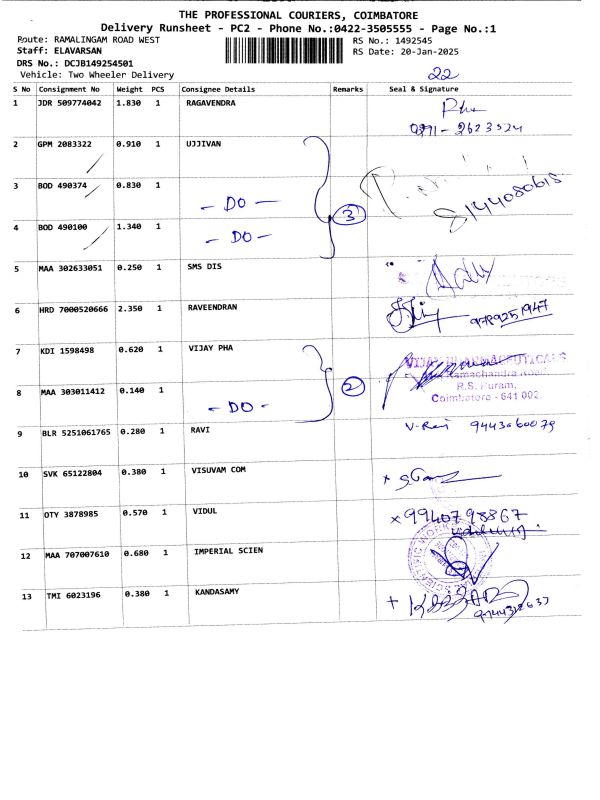 THE PROFESSIONAL COURIERS, COIMBATORE
Delivery Runsheet - PC2 - Phone No.:0422-3505555 - Page No.:1
Route: RAMALINGAM ROAD WEST RS No.: 1492545
Staff: ELAVARSAN RS Date: 20-Jan-2025
DRS No.: DCJB149254501
Vehicle: Two Wheeler Delivery 22
S No Consignment No Weight PCS Consignee Details Remarks Seal & Signature
1 JDR 509774042 1.830 1 RAGAVENDRA
2 GPM 2083322 0.910 1 UJJIVAN
3 BOD 490374 0.830 1 - DO - 3 8144080618
4 BOD 490100 1.340 1 - DO -
5 MAA 302633051 0.250 1 SMS DIS
6 HRD 7000520666 2.350 1 RAVEENDRAN 9789251947
7 KDI 1598498 0.620 1 VIJAY PHA VIJAY PHARMACEUTICALS
Ramachandra Road
8 MAA 303011412 0.140 1 - DO - 2 R.S. Puram,
Coimbatore - 641 002.
9 BLR 5251061765 0.280 1 RAVI V-Ravi 9443660079
10 SVK 65122804 0.380 1 VISUVAM COM
11 OTY 3878985 0.570 1 VIDUL x 9940798867
12 MAA 707007610 0.680 1 IMPERIAL SCIEN
13 TMI 6023196 0.380 1 KANDASAMY